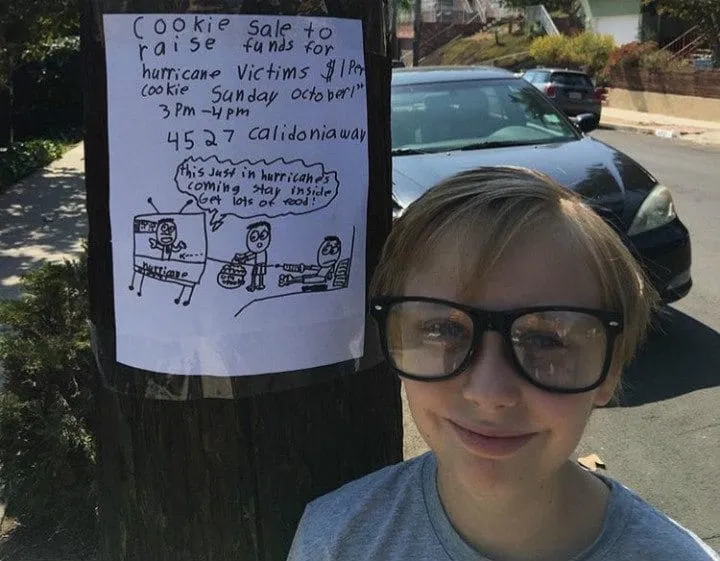 Cookie Sale to
raise funds for
hurricane Victims $1 Per
cookie Sunday october 1st
3 Pm - 4 pm
4527 calidonia way
this just in hurricanes
coming stay inside
Get lots of food!
hurricane